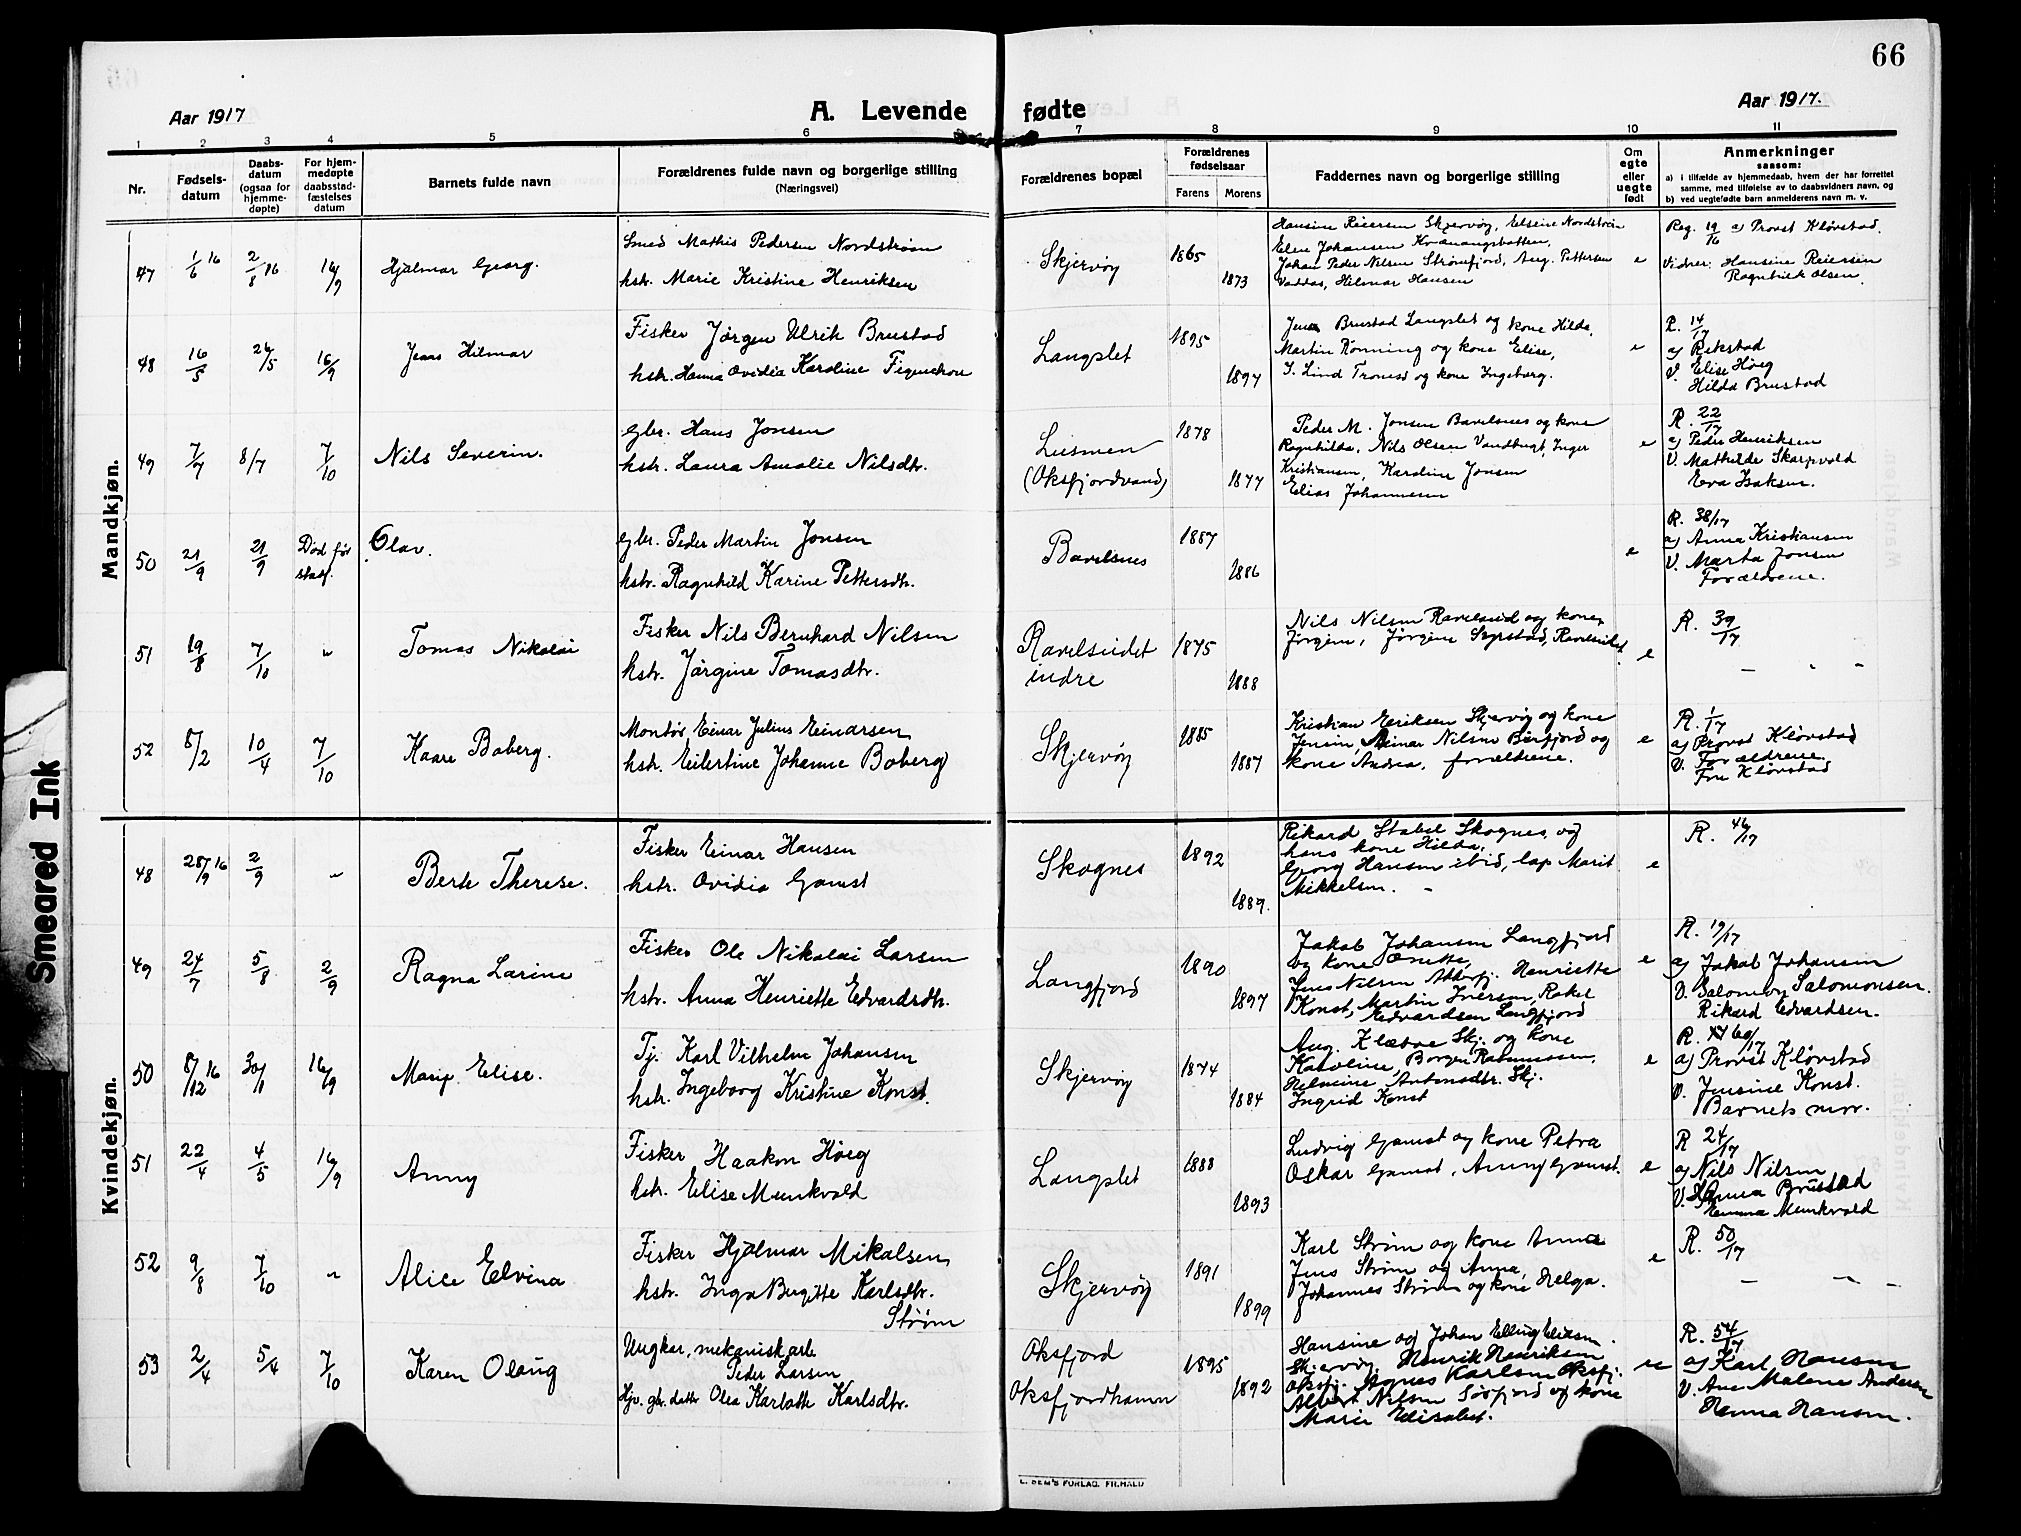 66
Aar 1917
A. Levende
fødte
Aar 1917.
1 2 3 4 5 6 7 8 9 10 11
Nr.
Fødsels-
datum
Daabs-
datum
(ogsaa for
hjemme-
døpte)
For hjem-
medøpte
daabsstad-
fæstelses
datum
Barnets fulde navn
Forældrenes fulde navn og borgerlige stilling
(Næringsvei)
Forældrenes bopæl
Forældrenes
fødselsaar
Farens Morens
Faddernes navn og borgerlige stilling
Om
egte
eller
uegte
født
Anmerkninger
saasom:
a) i tilfælde av hjemmedaab, hvem der har forrettet
samme, med tilføielse av to daabsvidners navn, og
b) ved uegtefødte barn anmelderens navn m. v.
Mandkjøn.
47 1/6 16 2/8 16 16/9 Hjalmar Georg.
Smed Mathis Pedersen Nordstrøm
hstr. Marie Kristine Henriksen
Skjervøy 1865 1873
Hansine Reiersen Skjervøy, Elseine Nordstrøm
Elen Johansen Kvænangsbotten,
Johan Peder Nilsen Strømfjord, Aug. Pettersen
Vaddas, Hilmar Hansen
e
Reg. 19/16 a) Provst Kløvstad.
Vidner: Hansine Reiersen
Ragnhild Olsen.
48 16/5 26/5 16/9 Jens Hilmar
Fisker Jørgen Ulrik Brustad
hstr. Hanna Ovidia Karoline Figenchou
Langslet 1895 1897
Jens Brustad Langslet og kone Hilda,
Martin Rønning og kone Elise,
I. Lind Tromsø og kone Ingeborg.
e
R. 14/17
a) Rekstad
V. Elise Høeg
Hilda Brustad
49 7/7 8/7 7/10 Nils Severin.
gbr. Hans Jonsen
hstr. Laura Amalie Nilsdtr.
(Oksfjordvand) 1878 1877
Peder M. Jonsen Bavelsnes og kone
Ragnhilda, Nils Olsen Vandbugt, Inger
Kristiansen, Karoline Jonsen
Elias Johannesen
e
R. 22/17
a) Peder Henriksen
V. Mathilde Skarpvold
Eva Isaksen.
50 21/9 21/9 Død før
stadf.
Olav.
gbr. Peder Martin Jonsen
hstr. Ragnhild Karine Pettersdtr.
Bavelsnes 1887 1886
e
R. 38/17
a) Anna Kristiansen
V. Marta Jonsen
Forældrene.
51 19/8 7/10 " Tomas Nikolai
Fisker Nils Bernhard Nilsen
hstr. Jørgine Tomasdtr.
Ravelseidet
indre
1875 1888
Nils Nilsen Ravelseid og kone
Jørgine Ravelseidet
e
R. 39/17
52 8/2 10/4 7/10 Kaare Boberg.
Montør Einar Julius Einarsen
hstr. Eilertine Johanne Boberg
Skjervøy 1885 1887
Kristian Eriksen Skjervøy og kone
Einar Nilsen og
kone Andrea, forældrene.
e
R. 1/17
a) Provst Kløvstad
V. Forældrene
Fru Kløvstad
Kvindekjøn.
48 28/9 16 2/9 " Berte Therese.
Fisker Einar Hansen
hstr. Ovidia Gamst
Skognes 1892 1889.
Rikard Stabel Skognes og
hans kone Hilda,
Georg Hansen ibid, lap Marit
Mikkelsen.
e
R. 46/17
49 24/7 5/8 2/9 Ragna Larine
Fisker Ole Nikolai Larsen
hstr. Anna Henriette Edvardsdtr.
Langfjord 1890 1897
Jakob Johansen Langfjord
og kone Anette,
Jens Nilsen Henriette
Konst, Martin Iversen, Rakel
Edvardsen Langfjord
e
R. 19/17
a) Jakob Johansen
V. Salomon Salomonsen.
Rikard Edvardsen.
50 8/12 16 30/1 16/9 Marie Elise.
Tj. Karl Vilhelm Johansen
hstr. Ingeborg Kristine Konst.
Skjervøy 1874 1884
Aug. Kløtve Skj. og kone
Karoline, Borgen Rasmussen,
Helmine Antonsdtr. Skj.
Ingrid Konst
e
R. 60/17
a) Provst Kløvstad
V. Jensine Konst.
Barnets mor.
51 22/4 4/5 16/9 Anny
Fisker Haakon Høeg
hstr. Elise Munkvold
Langslet 1888 1893
Ludvig Gamst og kone Petra
Oskar Gamst, Anny Gamst.
e
R 24/17
a) Nils Nilsen
V. Hanna Brustad
Hanna Munkvold
52 9/8 7/10 " Alice Elvina
Fisker Hjalmar Mikalsen
hstr. Inga Birgitte Karlsdtr.
Strøm
Skjervøy 1891 1899
Karl Strøm og kone Anna
Jens Strøm og Anna,
Johannes Strøm og kone Helga.
e
R. 50/17
53 2/4 5/4 7/10 Karen Olaug
Ungkar, mekanisk arb.
Peder Larsen
Hjv. gbr. datter Olea Karlotte Karlsdtr.
Oksfjord
Oksfjordhamn
1895 1892
Hansine og Johan Elling Eliasen.
Skjervøy, Henrik Henriksen
Oksfj. Agnes Karlsen Oksfj.
Albert Nilsen Sørfjord og kone
Marie Elisabet.
ue
R. 54/17
a) Karl Hansen
V. Ane Malene Andersen
Hanna Hansen.
E. SEM'S FORLAG, FR.HALD
Smeared Ink